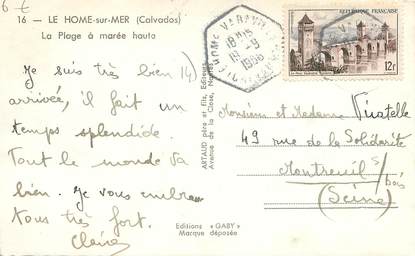 6 €
16 - LE HOME-sur-MER (Calvados)
La Plage à marée haute
Je suis très bien
arrivée, il fait un
temps splendide.
Tout le monde va
bien. Je vous embrasse
tous très fort.
Claire
ARTAUD père et fils, Editeurs
Avenue de la Close, Nantes
Editions « GABY »
Marque déposée
18H15
15-9
1956
REPUBLIQUE FRANÇAISE
12F
Monsieur et Madame
49 rue de la Solidarité
Montreuil s/ bois
(Seine)